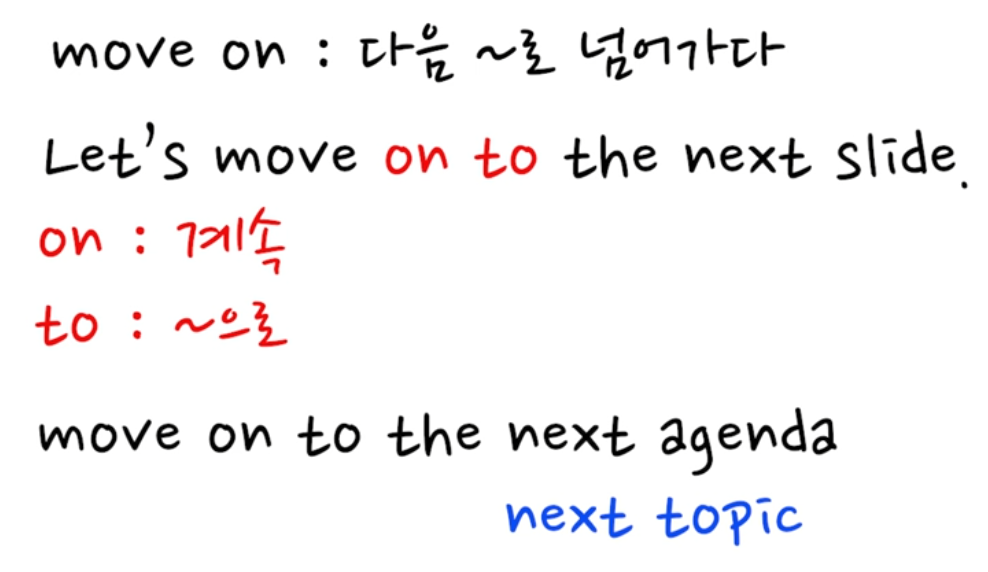 move on : 다음 ~로 넘어가다
Let's move on to the next slide.
on : 계속
to : ~으로
move on to the next agenda
next topic